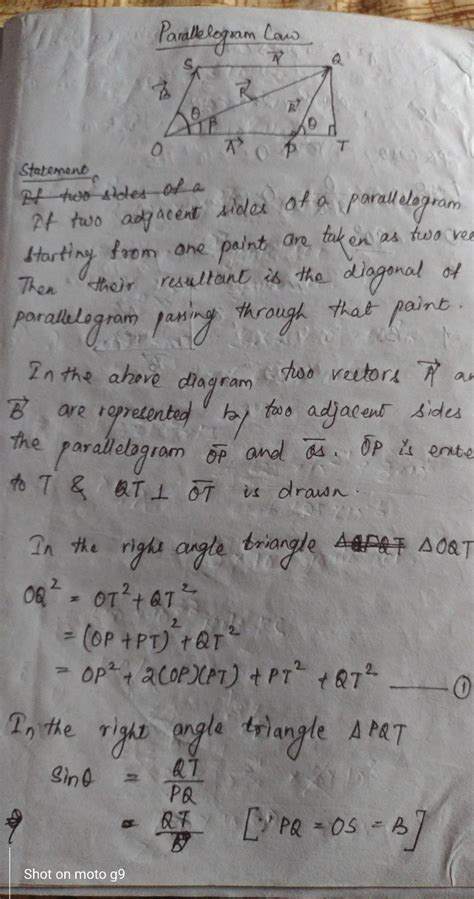 Parallelogram Law
S A Q
B θ R B
β θ
O A P T
Statement
If two sides of a
If two adjacent sides of a parallelogram
starting from one point are taken as two vec
Then their resultant is the diagonal of
parallelogram passing through that point.
In the above diagram two vectors A⃗ an
B⃗ are represented by two adjacent sides
the parallelogram O̅P̅ and O̅S̅. O̅P̅ is exte
to T & QT ⊥ O̅T̅ is drawn.
In the right angle triangle ΔOQT
OQ² = OT² + QT²
= (OP + PT)² + QT²
= OP² + 2(OP)(PT) + PT² + QT² —— ①
In the right angle triangle Δ PQT
Sinθ = QT/PQ
= QT/B [∵ PQ = OS = B]
Shot on moto g9